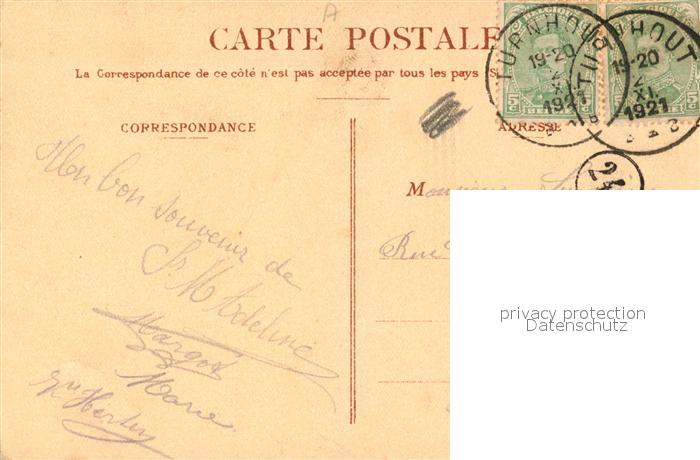 CARTE POSTALE
La Correspondance de ce côté n'est pas acceptée par tous les pays
CORRESPONDANCE
ADRESSE
TURNHOUT
19-20
XI
1921
TURNHOUT
19-20
XI
1921
24
Monsieur
Rue
Mon bon souvenir de
Sr M Adeline
Margot
Marie
privacy protection
Datenschutz